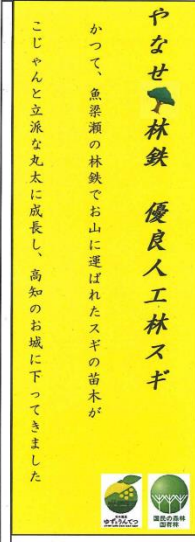 やなせ林鉄　優良人工林スギ
かつて、魚梁瀬の林鉄でお山に運ばれたスギの苗木が
こじゃんと立派な丸太に成長し、高知のお城に下ってきました
ゆずとりんてつ
国民の森林
国有林